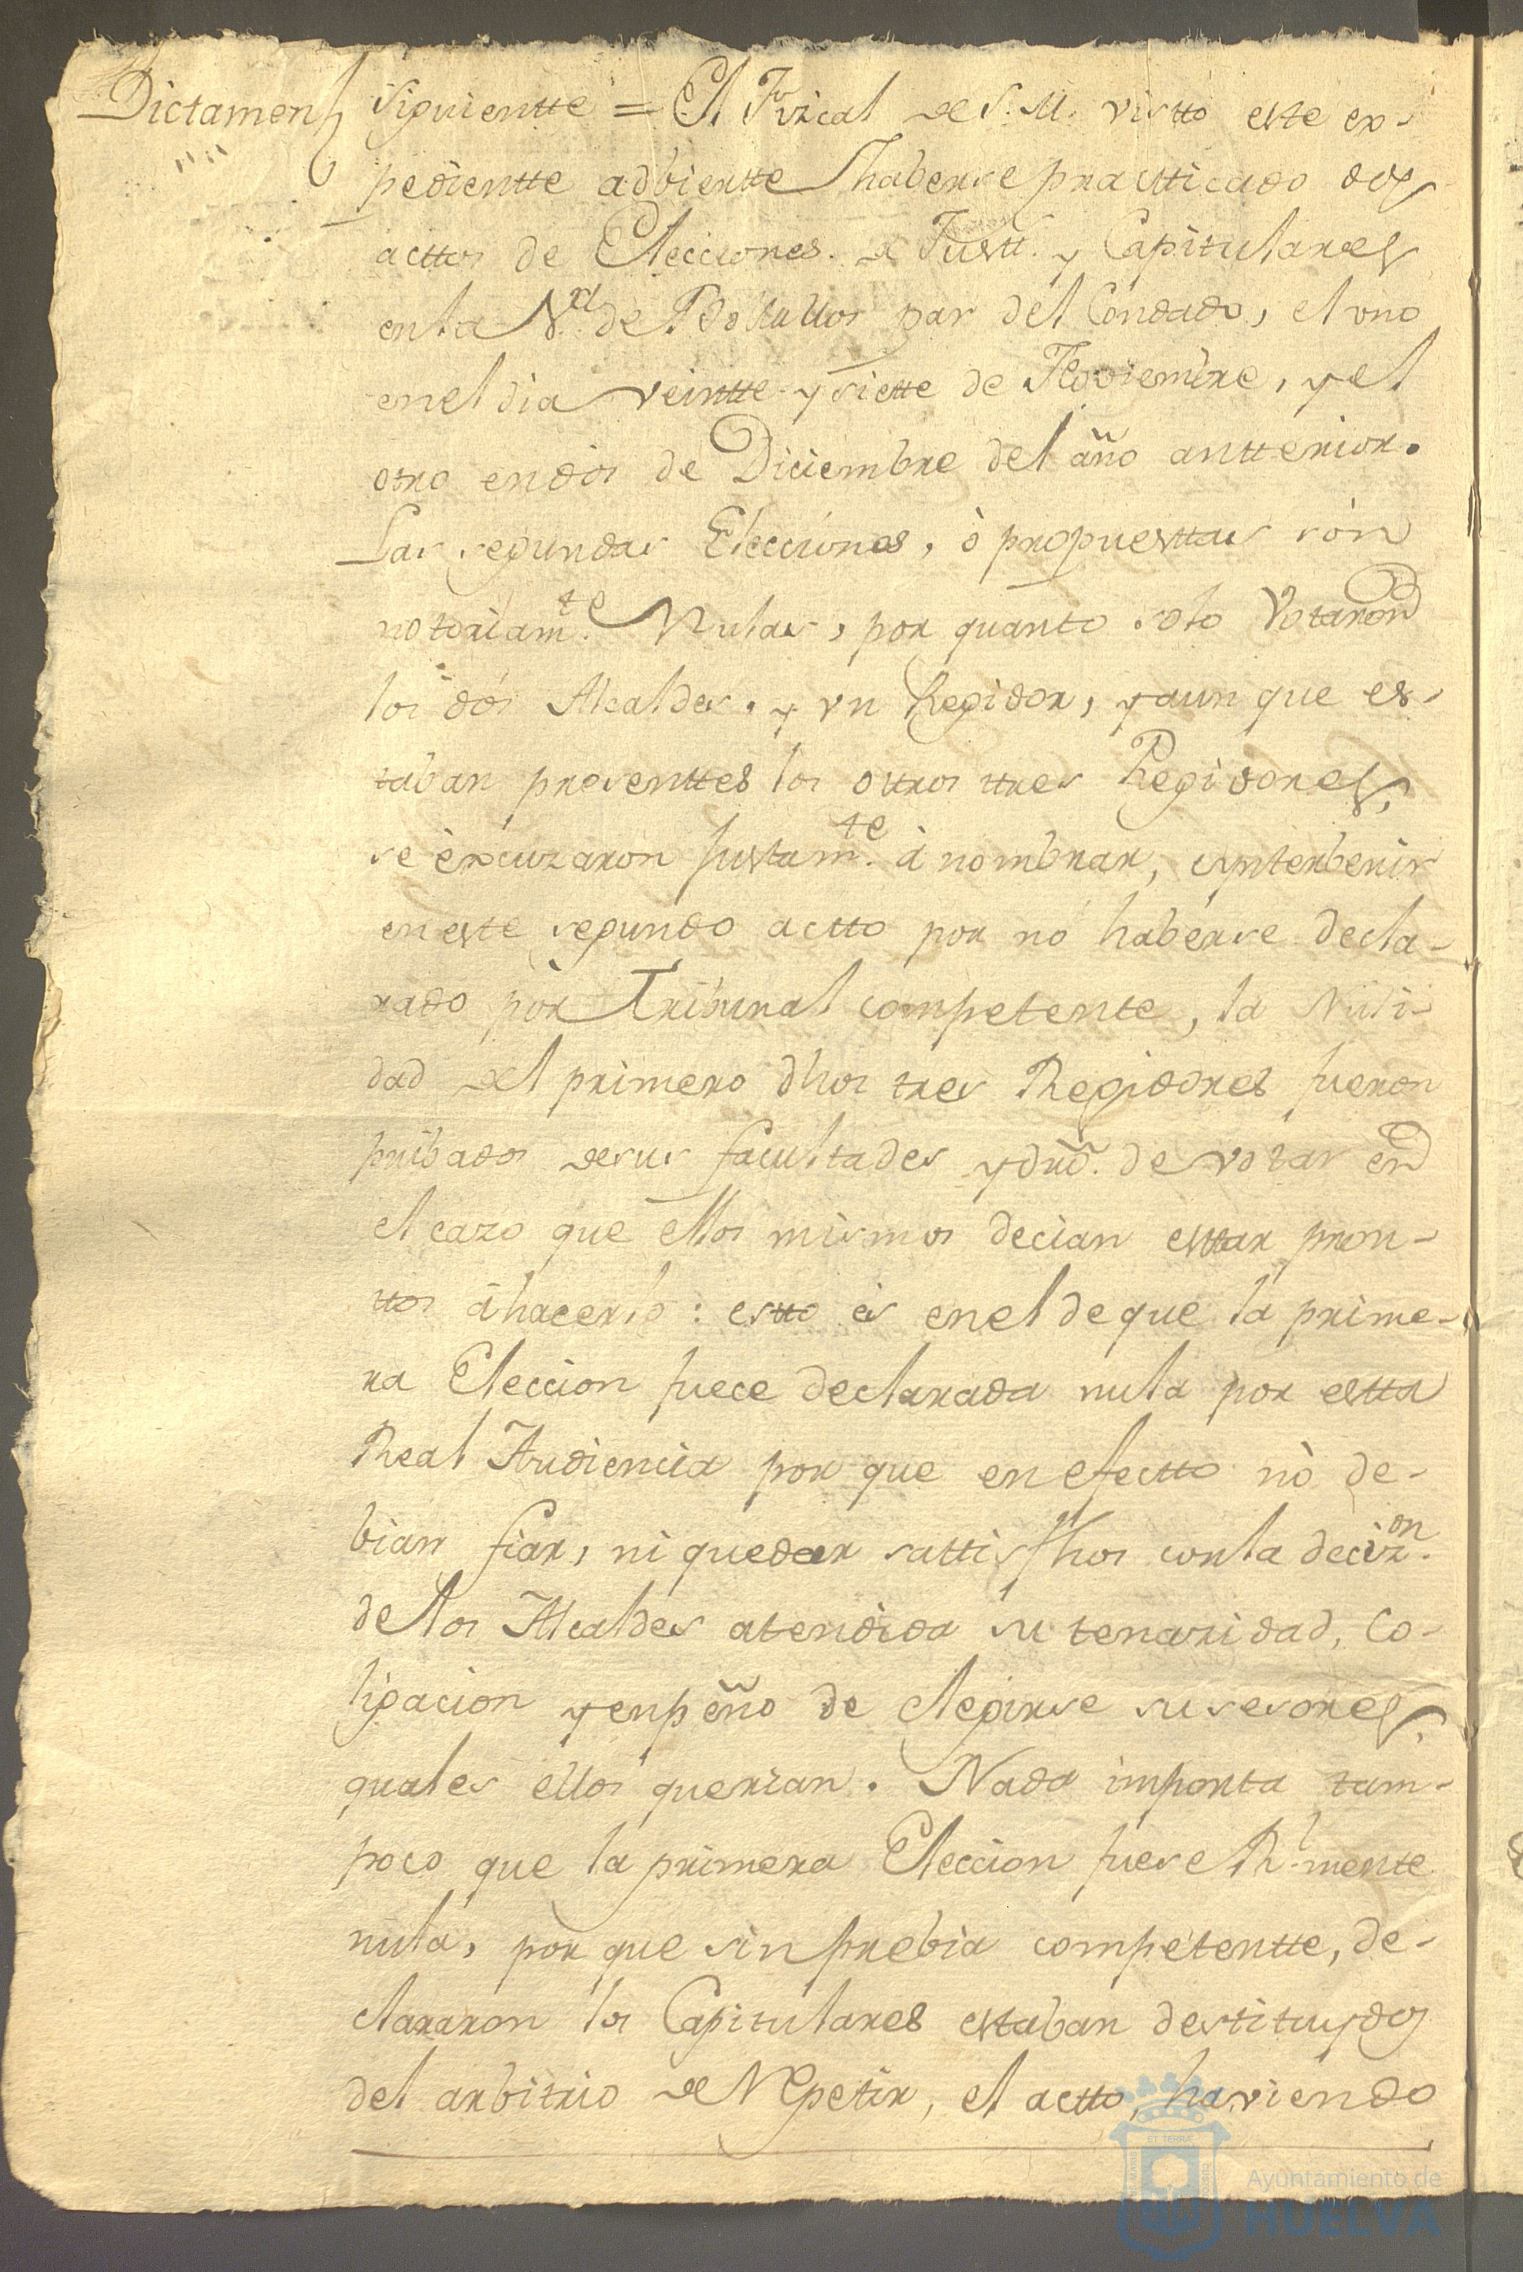 Dictamen
siguientte = El Fizcal de S. M. vistto este ex-
pedientte adbiertte haberse practticado dos
acttos de Elecciones de Justt. y Capitulares
en la V.ª de Bollullos par del Condado, el uno
en el dia veintte y siette de Noviembre, y el
otro en dos de Diciembre del año antterior.
Las segundas Elecciones, ò propuesttas son
notoriam.te Nulas, por quanto solo Votaron
los dos Alcaldes, y un Regidor, y aun que es-
taban presenttes los ottros ttres Regidores,
se èxcuzaron Justam.te à nombrar, è ynterbenir
en este segundo actto por no haberse decla-
rado por Tribunal competente, la Nuli-
dad del primero dhos tres Regidores fueron
pribados de sus facultades y dro. de votar en
el cazo que ellos mismos decian esttar pron-
ttos à hacerlo: estto es en el de que la prime-
ra Eleccion fuece declarada nula por estta
Real Audiencia por que en efectto nò de-
bian fiar, ni quedar sattisfhos con la deciz.on
de los Alcaldes atendida su tenazidad, Co-
ligacion y enpeño de elegirse susesores,
quales ellos querian. Nada importa tam-
poco que la primera Eleccion fuese R.lmente
nula, por que sin prebia competentte, de-
clararon los Capitulares estaban destituydos
del arbitrio de Repetir, el actto, haviendo
Ayuntamiento de
HUELVA